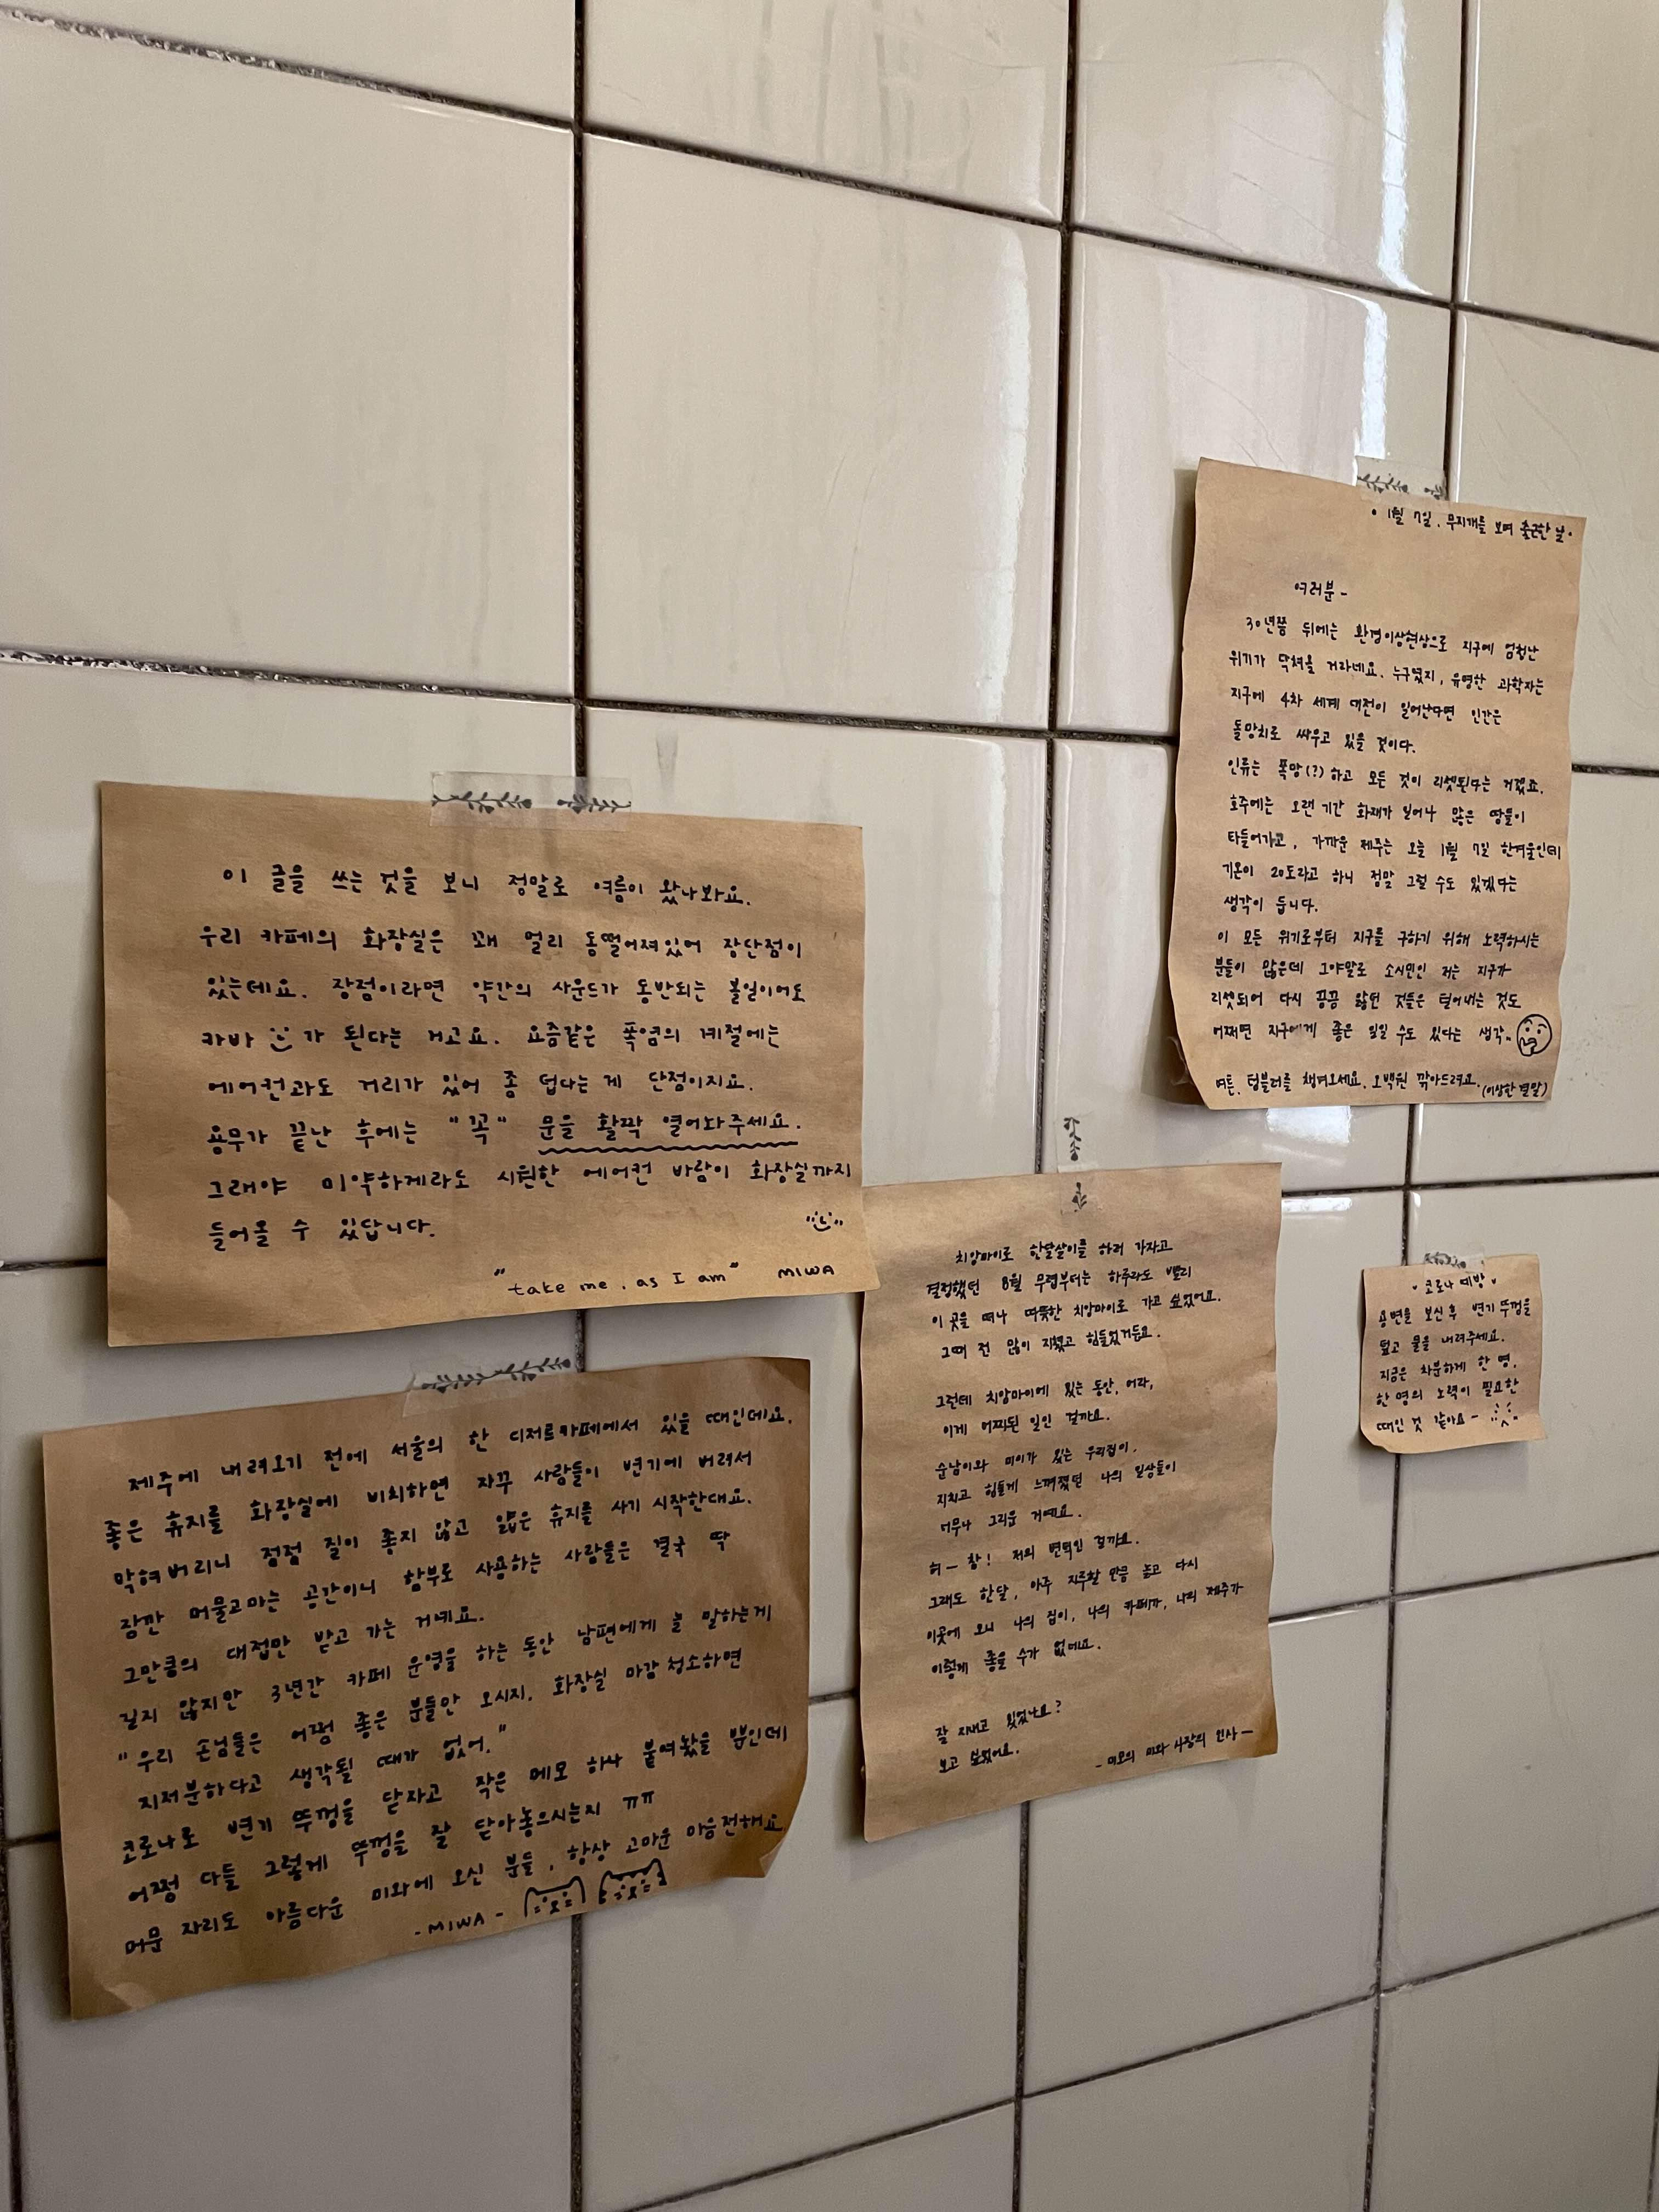 이 글을 쓰는 것을 보니 정말로 여름이 왔나봐요.
우리 카페의 화장실은 꽤 멀리 동떨어져있어 장단점이
있는데요. 장점이라면 약간의 사운드가 동반되는 볼일이어도
카바 가 된다는 거고요. 요즘같은 폭염의 계절에는
에어컨과도 거리가 있어 좀 덥다는 게 단점이지요.
용무가 끝난 후에는 "꼭" 문을 활짝 열어놔주세요.
그래야 미약하게라도 시원한 에어컨 바람이 화장실까지
들어올 수 있답니다.
"take me, as I am" MIWA
제주에 내려오기 전에 서울의 한 디저트카페에서 있을 때인데요.
좋은 휴지를 화장실에 비치하면 자꾸 사람들이 변기에 버려서
막혀버리니 점점 질이 좋지 않고 얇은 휴지를 사기 시작한대요.
잠깐 머물고마는 공간이니 함부로 사용하는 사람들은 결국 딱
그만큼의 대접만 받고 가는 거예요.
길지 않지만 3년간 카페 운영을 하는 동안 남편에게 늘 말하는게
"우리 손님들은 어쩜 좋은 분들만 오시지. 화장실 마감 청소하면
지저분하다고 생각될 때가 없어."
코로나로 변기 뚜껑을 닫자고 작은 메모 하나 붙여놨을 뿐인데
어쩜 다들 그렇게 뚜껑을 잘 닫아놓으시는지 ㅠㅠ
머문 자리도 아름다운 미와에 오신 분들, 항상 고마운 마음전해요
- MIWA -
• 1월 7일. 무지개를 보며 출근한 날 •
여러분 -
30년쯤 뒤에는 환경이상현상으로 지구에 엄청난
위기가 닥쳐올 거라네요. 누구였지, 유명한 과학자는
지구에 4차 세계 대전이 일어난다면 인간은
돌망치로 싸우고 있을 것이다.
인류는 폭망(?)하고 모든 것이 리셋된다는 거겠죠.
호주에는 오랜 기간 화재가 일어나 많은 땅들이
타들어가고, 가까운 제주는 오늘 1월 7일 한겨울인데
기온이 20도라고 하니 정말 그럴 수도 있겠다는
생각이 듭니다.
이 모든 위기로부터 지구를 구하기 위해 노력하시는
분들이 많은데 그야말로 소시민인 저는 지구가
리셋되어 다시 끙끙 앓던 것들은 털어내는 것도
어쩌면 지구에게 좋은 일일 수도 있다는 생각..
여튼, 텀블러를 챙겨오세요. 오백원 깎아드려요. (이상한 결말)
치앙마이로 한달살이를 하러 가자고
결정했던 8월 무렵부터는 하루라도 빨리
이 곳을 떠나 따뜻한 치앙마이로 가고 싶었어요.
그때 전 많이 지쳤고 힘들었거든요.
그런데 치앙마이에 있는 동안, 어라,
이게 어찌된 일인 걸까요.
순남이와 미미가 있는 우리집이,
지치고 힘들게 느껴졌던 나의 일상들이
너무나 그리운 거예요.
허 — 참! 저의 변덕인 걸까요.
그래도 한달, 아주 지루할 만큼 놀고 다시
이곳에 오니 나의 집이, 나의 카페가, 나의 제주가
이렇게 좋을 수가 없네요.
잘 지내고 있었나요?
보고 싶었어요.
- 미모의 미와 사장의 인사 —
코로나 예방
용변을 보신 후 변기 뚜껑을
덮고 물을 내려주세요.
지금은 차분하게 한 명,
한 명의 노력이 필요한
때인 것 같아요 -